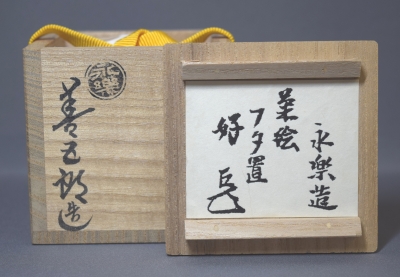 永樂
善五郎造
永樂造
菜絵
フタ置
好